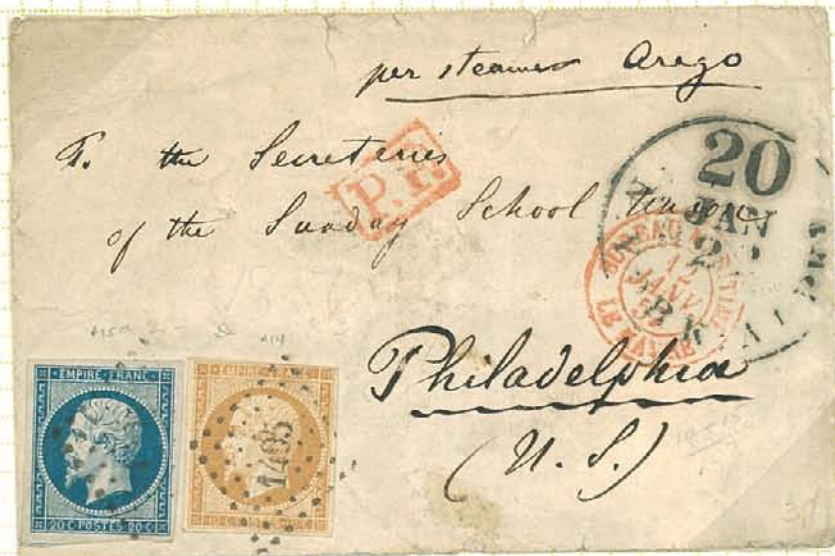 per steamer Arago
To the Secreteries
of the Sunday School Union
Philadelphia
(U. S.)
P.P.
20
JAN
BUREAU MARITIME
12
JANV
LE HAVRE
EMPIRE FRANC
20 C POSTES 20 C
EMPIRE FRANC
1495